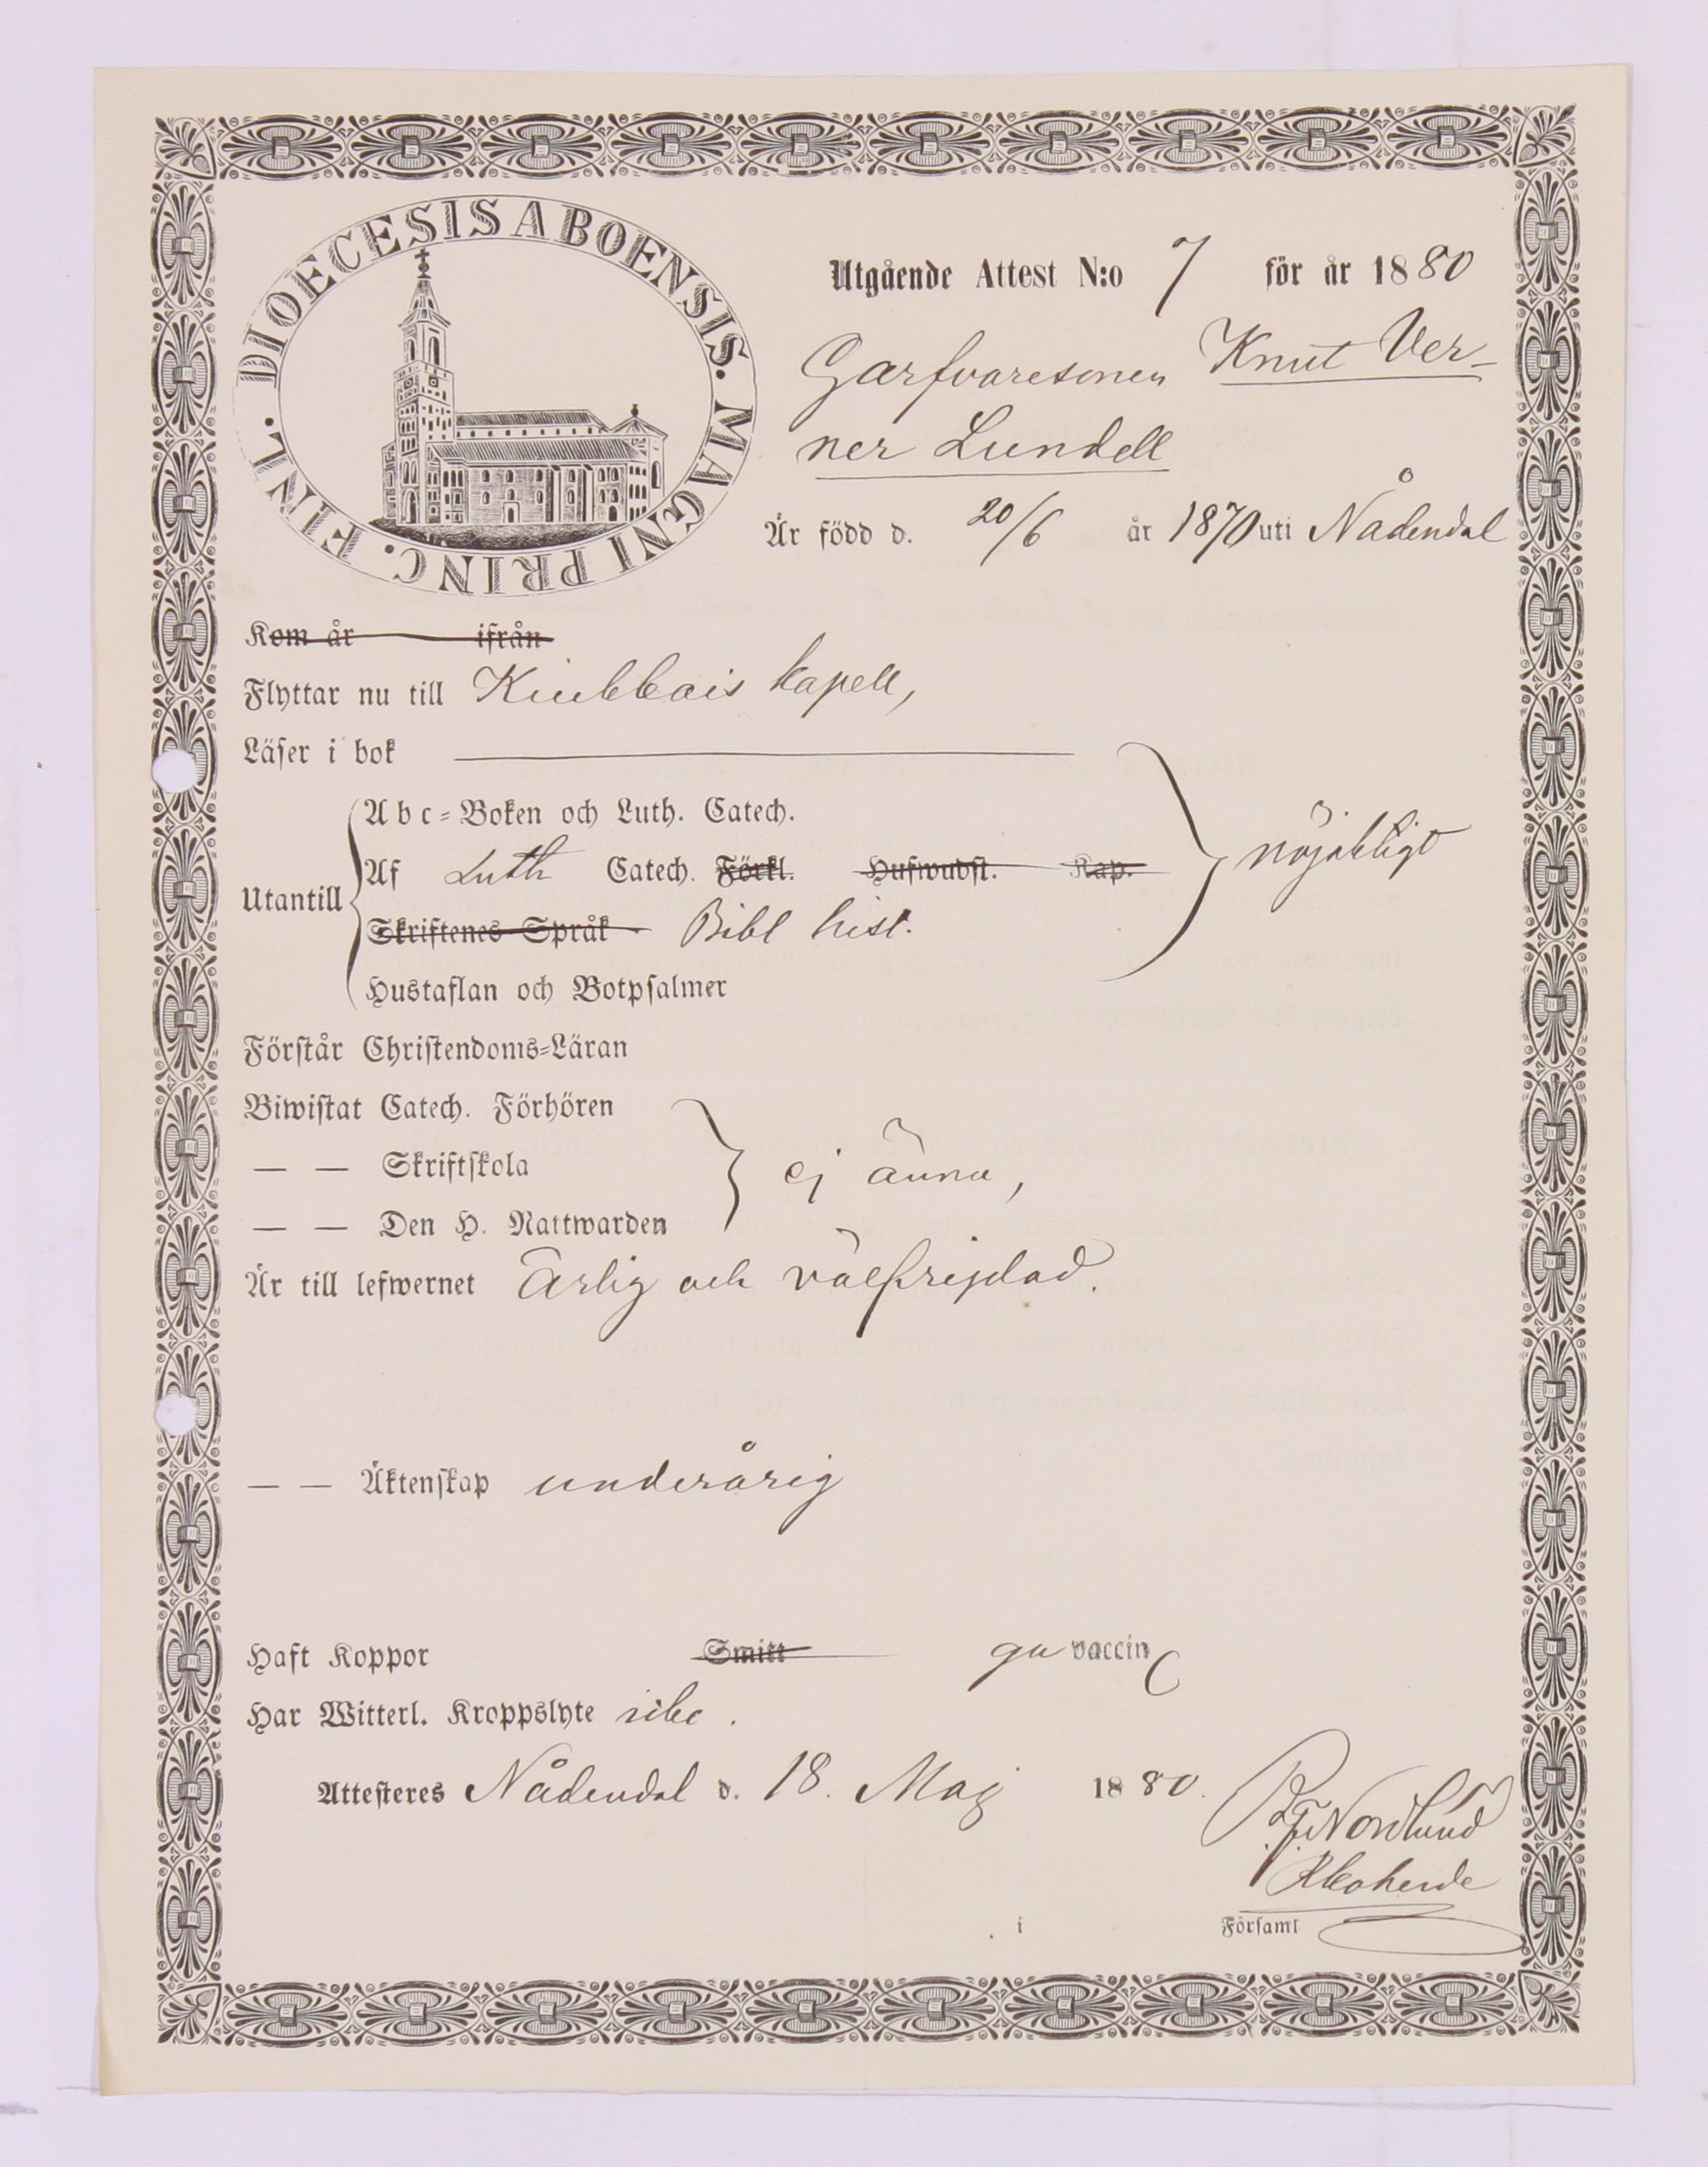 DIOECESIS ABOENSIS. MAGNI PRINC. FINL.
Utgående Attest N:o 7 för år 1880
Garfvaresonen Knut Ver-
ner Lundell
Är född d. 20/6 år 1870 uti Nådendal
Kom år ifrån
Flyttar nu till kapell,
Läser i bok
Abc-Boken och Luth. Catech.
Utantill
Af Luth Catech. Förkl. Hufwudst. Kap.
nöjaktigt
Skriftenes Språk Bibl hist.
Hustaflan och Botpsalmer
Förstår Christendoms-Läran
Biwistat Catech. Förhören
— — Skriftskola
ej ännu,
— — Den H. Nattwarden
Är till lefwernet Ärlig och välfrejdad.
— — Äktenskap underårig
Haft Koppor Smitt vaccin
Har Witterl. Kroppslyte icke.
Attesteres Nådendal d. 18. Maj 1880.
Nordlund
Kkoherde
i Församl